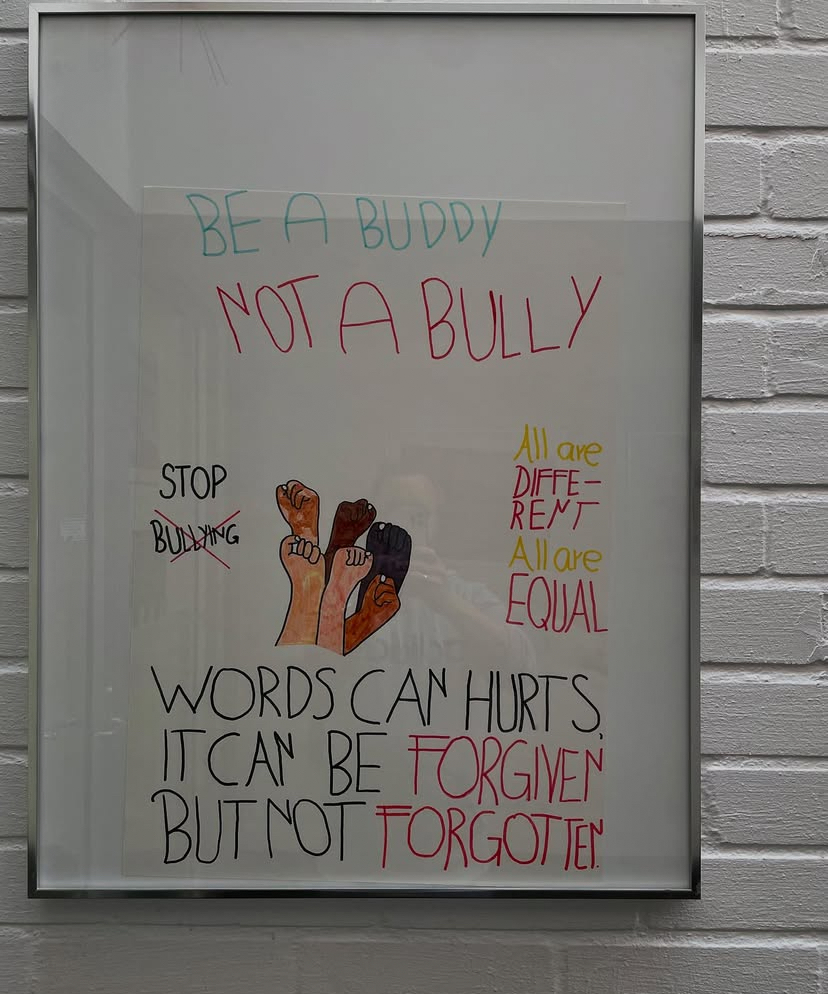 BE A BUDDY
NOT A BULLY
STOP
BULLYING
All are
DIFFE-
RENT
All are
EQUAL
WORDS CAN HURTS.
IT CAN BE FORGIVEN
BUT NOT FORGOTTEN.